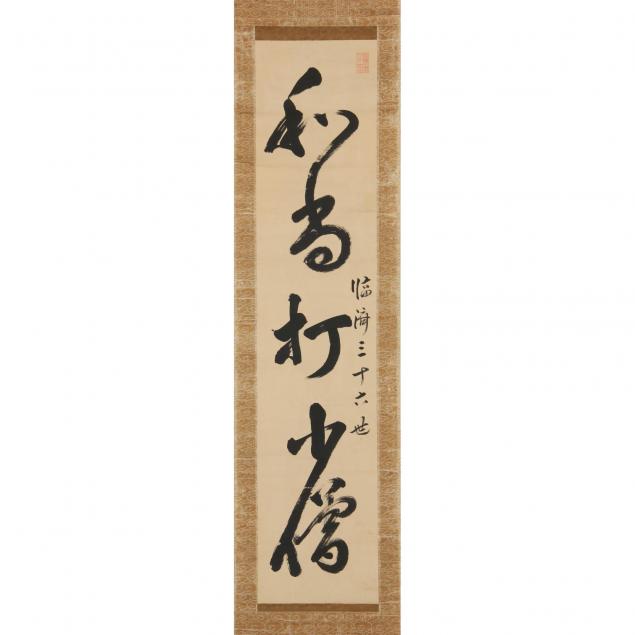 和尚打少僧
臨濟三十六世